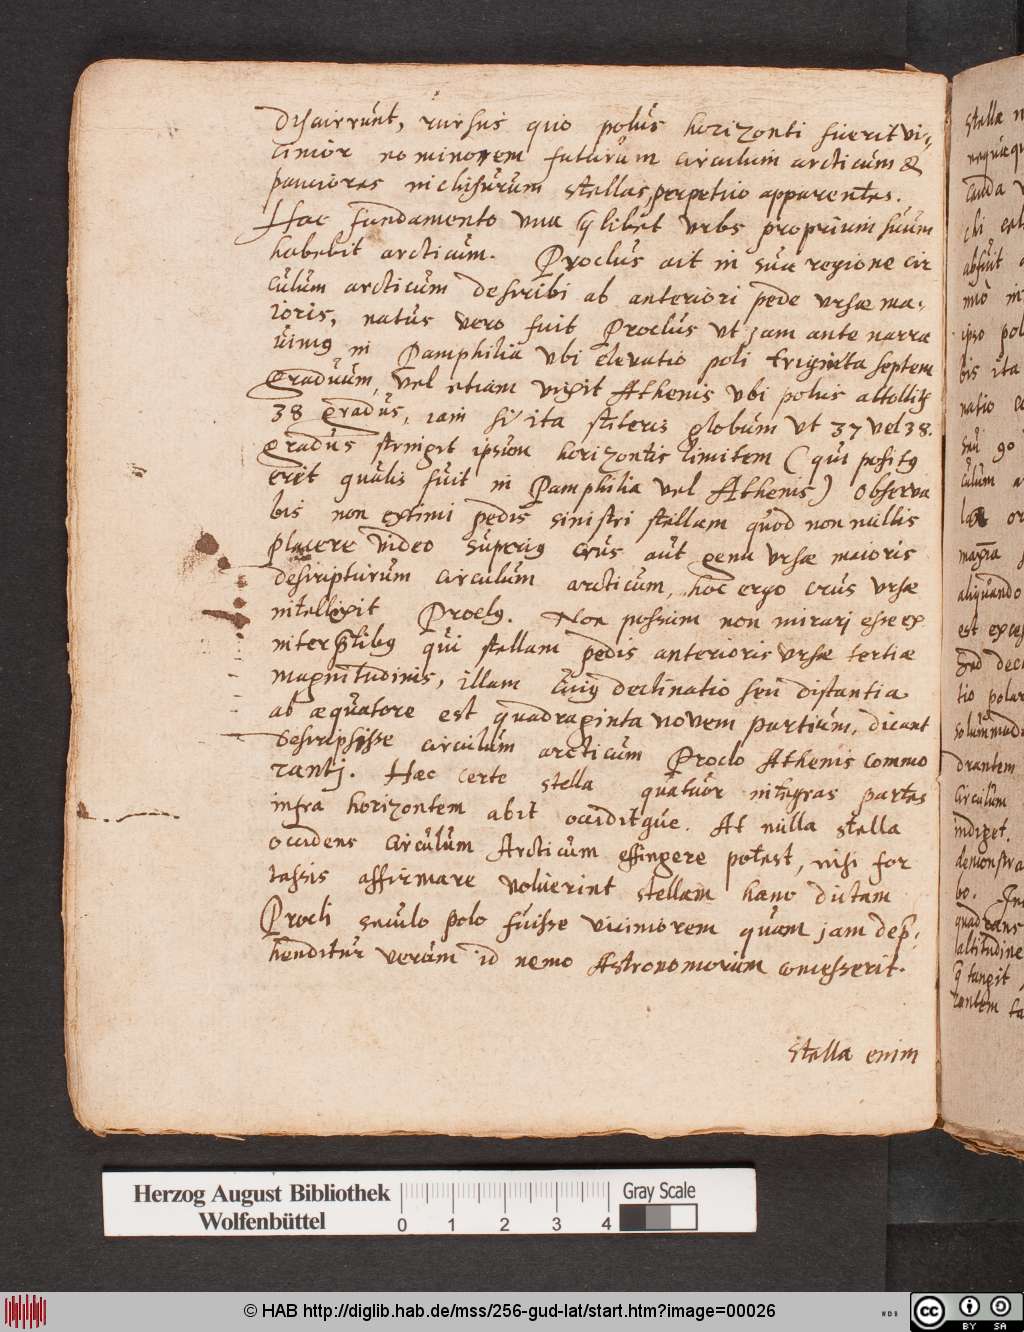 discurrunt, rursus quo polus horizonti fuerit vi-
cinior no minorem futurum circulum arcticum &
pauciores inclusurum stellas, perpetuo apparentes.
Hac fundamento una q̃libet urbs proprium suum
habebit arcticum. Proclus ait in sua regione cir
culum arcticum describi ab anteriori pede ursæ ma-
ioris, natus vero fuit Proclus ut jam ante narra
uimus in Pamphilia ubi elevatio poli triginta septem
graduum, vel etiam vixit Athenis ubi polus attollit
38 gradus, iam si ita steteris globum ut 37 vel 38.
gradus stringet ipsum horizontis limitem (qui positus
erit qualis fuit in Pamphilia vel Athenis) observa
bis non extimi pedis sinistri stellam quod non nullis
placere video superius crus aut genu ursæ maioris
descripturum circulum arcticum, hoc ergo crus ursæ
intellexit Proclus. Non possum non mirari esse ex
interp̃tibus qui stellam pedis anterioris ursæ tertiæ
magnitudinis, illam cuius declinatio seu distantia
ab æquatore est quadraginta novem partium, dicant
descripsisse circulum arcticum Proclo Athenis commo
ranti. Hæc certe stella quatuor integras partes
infra horizontem abit occiditque. At nulla stella
occidens circulum Arcticum effingere potest, nisi for
tassis affirmare voluerint stellam hanc dictam
Procli seculo polo fuisse viciniorem quam jam dep̃-
henditur verum id nemo Astronomorum concesserit.
Stella enim
stellæ
cauda
absuit
ipso pol
bis ita
natio
culum
aliquando
est exces
Sed decl
tio polar
drantem
circulum
indiget.
demonstra
bo.
quadrans
altitudine
q̃ tangit
Herzog August Bibliothek
Wolfenbüttel
0 1 2 3 4
Gray Scale
© HAB http://diglib.hab.de/mss/256-gud-lat/start.htm?image=00026
WDB
cc BY SA